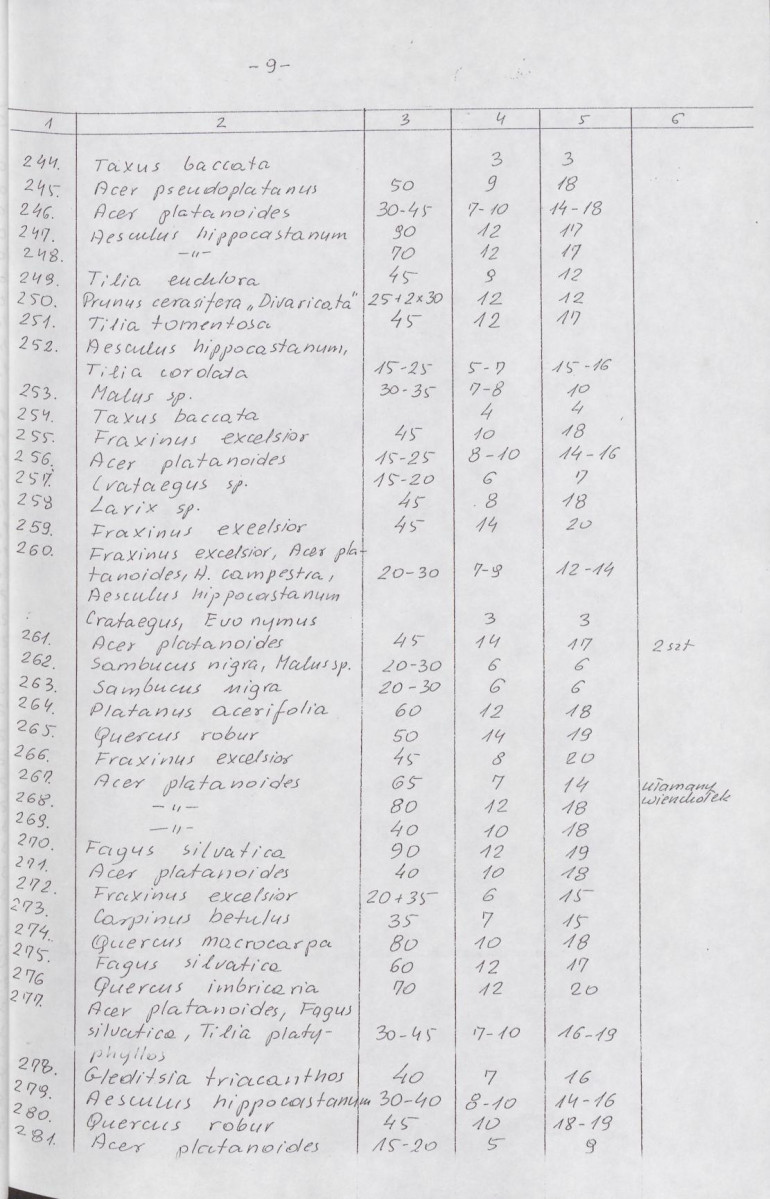 - 9 -
1 2 3 4 5 6
244. Taxus baccata 3 3
245. Acer pseudoplatanus 50 9 18
246. Acer platanoides 30-45 7-10 14-18
247. Aesculus hippocastanum 90 12 17
248. -"- 70 12 17
249. Tilia euchlora 45 9 12
250. Prunus cerasifera „Divaricata" 25+2x30 12 12
251. Tilia tomentosa 45 12 17
252. Aesculus hippocastanum,
Tilia corolata 15-25 5-7 15-16
253. Malus sp. 30-35 7-8 10
254. Taxus baccata 4 4
255. Fraxinus excelsior 45 10 18
256. Acer platanoides 15-25 8-10 14-16
257. Crataegus sp. 15-20 6 7
258 Larix sp. 45 8 18
259. Fraxinus exeelsior 45 14 20
260. Fraxinus excelsior, Acer pla-
tanoides, H. campestra, 20-30 7-9 12-14
Aesculus hippocastanum
Crataegus, Evonymus 3 3
261. Acer platanoides 45 14 17 2 szt
262. Sambucus nigra, Malus sp. 20-30 6 6
263. Sambucus nigra 20-30 6 6
264. Platanus acerifolia 60 12 18
265. Quercus robur 50 14 19
266. Fraxinus excelsior 45 8 20
267. Acer platanoides 65 7 14 ułamany
268. -"- 80 12 18 wienchołek
269. -"- 40 10 18
270. Fagus silvatica 90 12 19
271. Acer platanoides 40 10 18
272. Fraxinus excelsior 20+35 6 15
273. Carpinus betulus 35 7 15
274. Quercus macrocarpa 80 10 18
275. Fagus silvatica 60 12 17
276 Quercus imbricaria 70 12 20
277. Acer platanoides, Fagus
silvatica, Tilia platy- 30-45 7-10 16-19
phyllos
278. Gleditsia triacanthos 40 7 16
279. Aesculus hippocastanum 30-40 8-10 14-16
280. Quercus robur 45 10 18-19
281. Acer platanoides 15-20 5 9